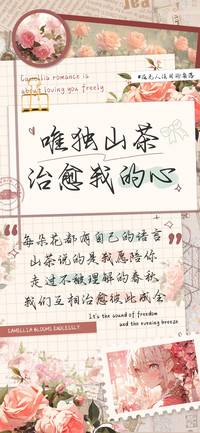 Camellia romance is
about loving you freely
#在无人注目的角落
唯独山茶
治愈我的心
每朵花都有自己的语言
山茶说的是我愿陪你
走过不被理解的春秋
我们互相治愈彼此成全
It's the sound of freedom
and the evening breeze
CAMELLIA BLOOMS ENDLESSLY